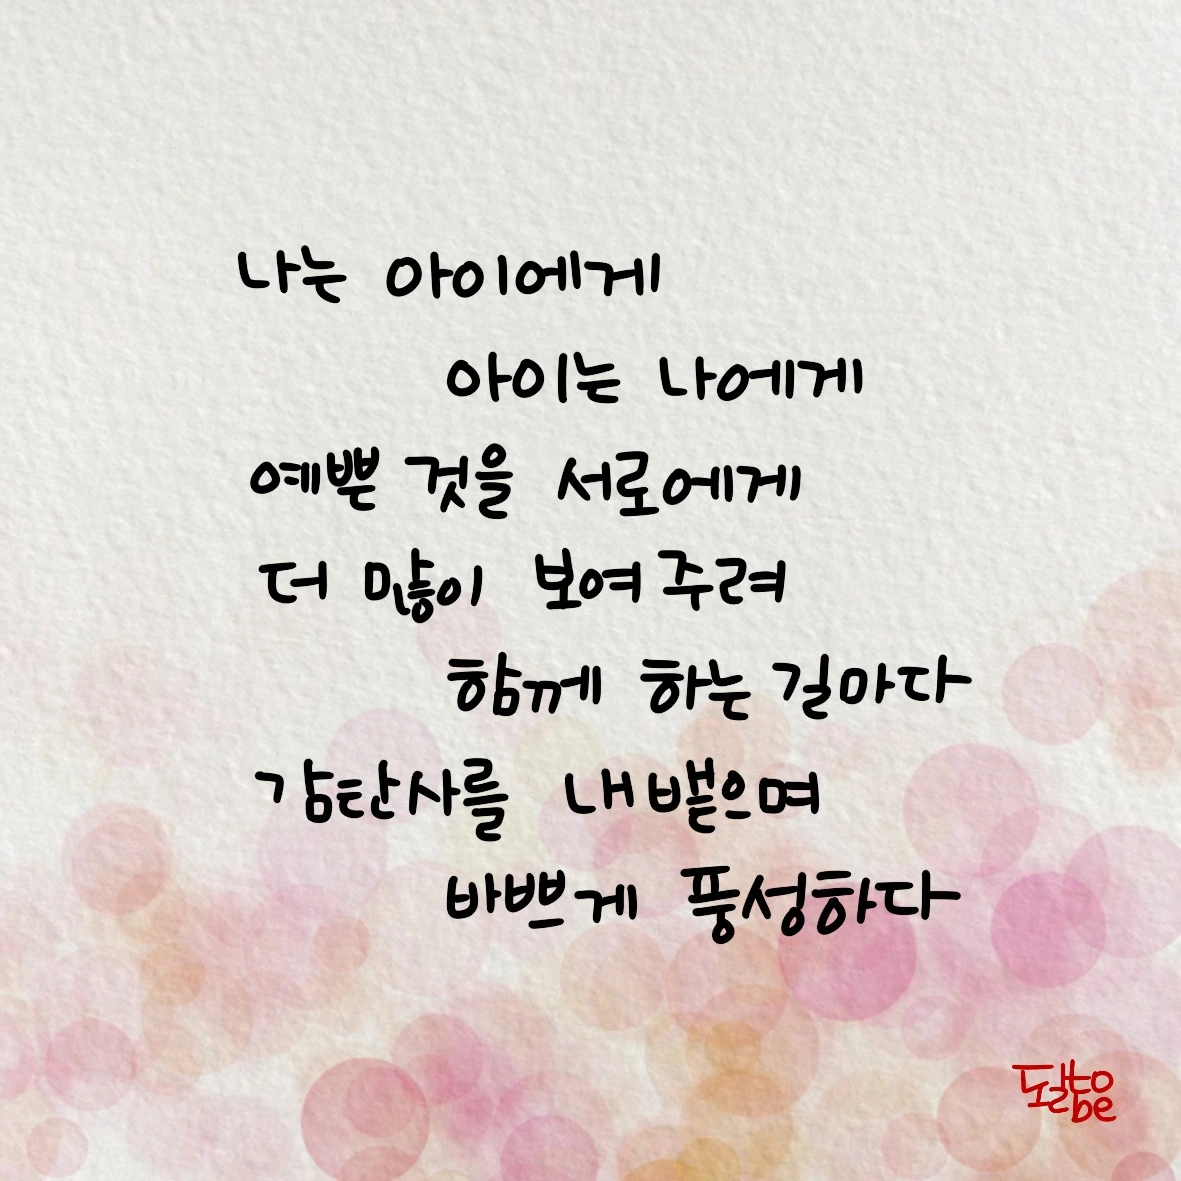 나는 아이에게
아이는 나에게
예쁜 것을 서로에게
더 많이 보여주려
함께 하는 길마다
감탄사를 내뱉으며
바쁘게 풍성하다
to
be